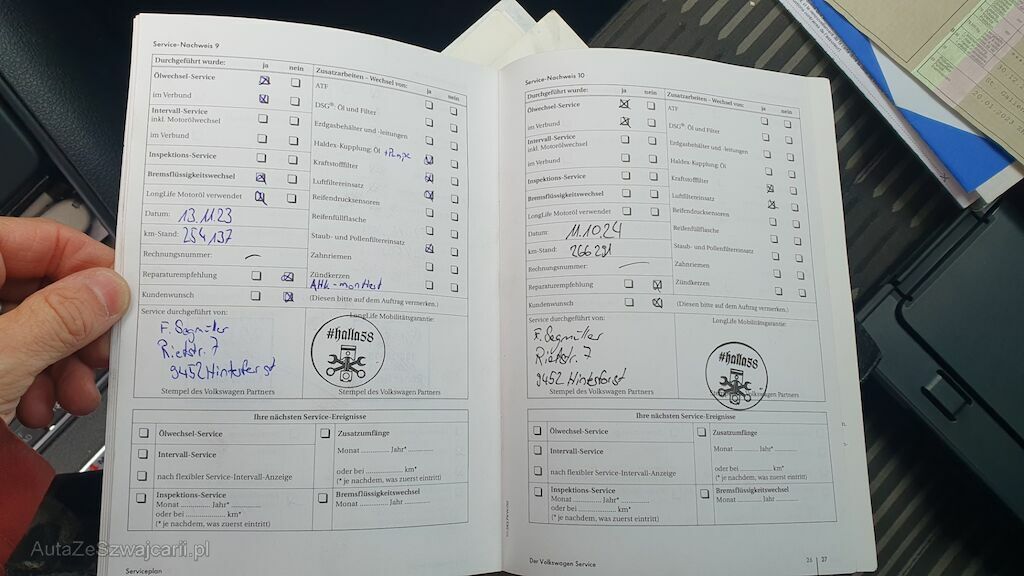 Service-Nachweis 9
Durchgeführt wurde: ja nein
Ölwechsel-Service
im Verbund
Intervall-Service
inkl. Motorölwechsel
im Verbund
Inspektions-Service
Bremsflüssigkeitswechsel
LongLife Motoröl verwendet
Datum: 13.11.23
km-Stand: 254 137
Rechnungsnummer:
Reparaturempfehlung
Kundenwunsch
Zusatzarbeiten – Wechsel von: ja nein
ATF
DSG®: Öl und Filter
Erdgasbehälter und -leitungen
Haldex-Kupplung: Öl +Pumpe
Kraftstofffilter
Luftfiltereinsatz
Reifendrucksensoren
Reifenfüllflasche
Staub- und Pollenfiltereinsatz
Zahnriemen
Zündkerzen
(Diesen bitte auf dem Auftrag vermerken.)
Service durchgeführt von:
Rietstr. 7
LongLife Mobilitätsgarantie:
#halla58
Stempel des Volkswagen Partners
Ihre nächsten Service-Ereignisse
Ölwechsel-Service
Intervall-Service
nach flexibler Service-Intervall-Anzeige
Inspektions-Service
Monat .............. Jahr* ..............
oder bei .............. km*
(* je nachdem, was zuerst eintritt)
Zusatzumfänge
Monat .............. Jahr* ..............
oder bei .............. km*
(* je nachdem, was zuerst eintritt)
Bremsflüssigkeitswechsel
Monat .............. Jahr ..............
Serviceplan
Service-Nachweis 10
Durchgeführt wurde: ja nein
Ölwechsel-Service
im Verbund
Intervall-Service
inkl. Motorölwechsel
im Verbund
Inspektions-Service
Bremsflüssigkeitswechsel
LongLife Motoröl verwendet
Datum: 11.10.24
km-Stand:
Rechnungsnummer:
Reparaturempfehlung
Kundenwunsch
Zusatzarbeiten – Wechsel von: ja nein
ATF
DSG®: Öl und Filter
Erdgasbehälter und -leitungen
Haldex-Kupplung: Öl
Kraftstofffilter
Luftfiltereinsatz
Reifendrucksensoren
Reifenfüllflasche
Staub- und Pollenfiltereinsatz
Zahnriemen
Zündkerzen
(Diesen bitte auf dem Auftrag vermerken.)
Service durchgeführt von:
Rietstr. 7
LongLife Mobilitätsgarantie:
#halla58
Stempel des Volkswagen Partners
Ihre nächsten Service-Ereignisse
Ölwechsel-Service
Intervall-Service
nach flexibler Service-Intervall-Anzeige
Inspektions-Service
Monat .............. Jahr* ..............
oder bei .............. km*
(* je nachdem, was zuerst eintritt)
Zusatzumfänge
Monat .............. Jahr* ..............
oder bei .............. km*
(* je nachdem, was zuerst eintritt)
Bremsflüssigkeitswechsel
Monat .............. Jahr ..............
Der Volkswagen Service
26 | 27
AutaZeSzwajcarii.pl